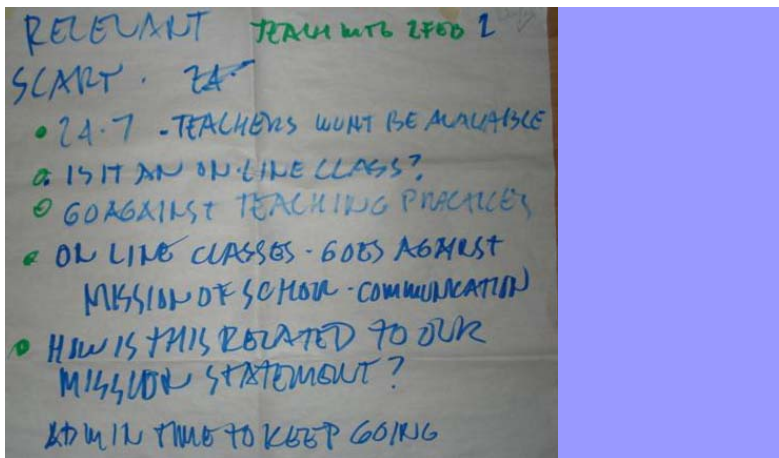 RELEVANT TEACH MTG 2 FEB 1
SCARY. 24
24.7 - TEACHERS WONT BE AVALIABLE
IS IT AN ON-LINE CLASS?
GO AGAINST TEACHING PRACTICES
ON LINE CLASSES - GOES AGAINST
MISSION OF SCHOOL - COMMUNICATION
HOW IS THIS RELATED TO OUR
MISSION STATEMENT?
ADMIN TIME TO KEEP GOING